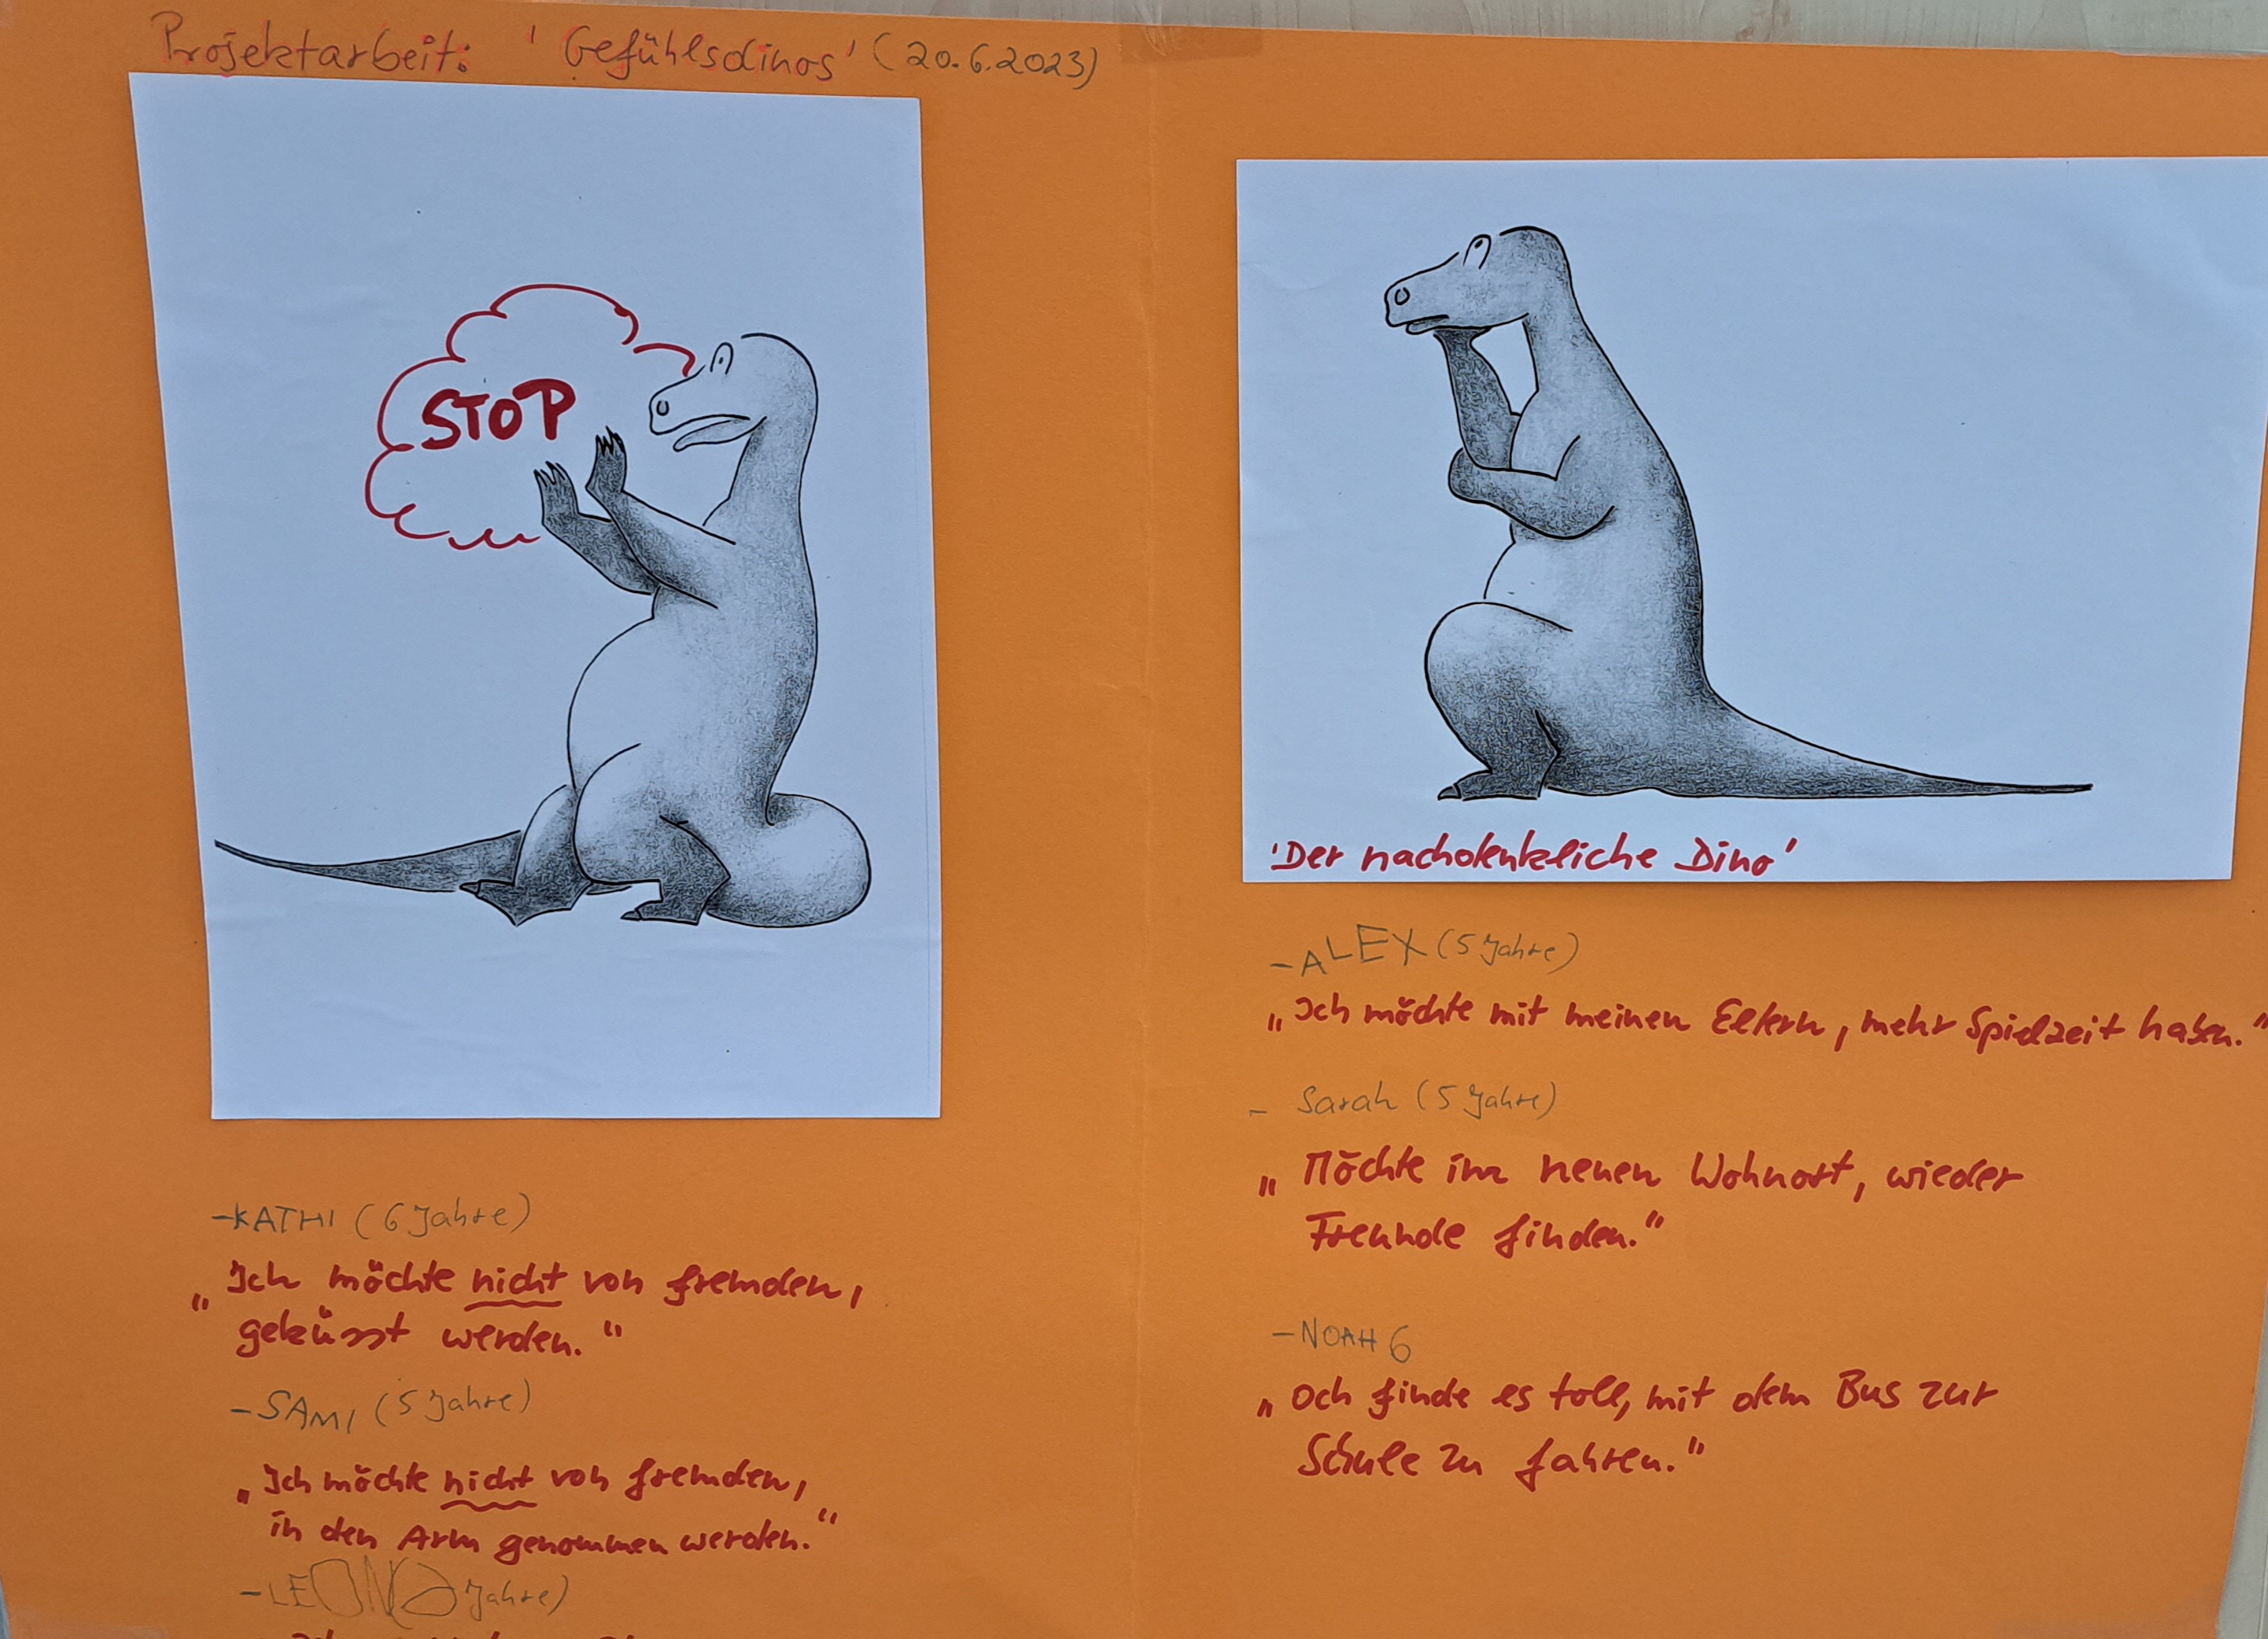 Projektarbeit: 'Gefühlsdinos' (20.6.2023)
STOP
-KATHI (6 Jahre)
„Ich möchte nicht von fremden,
geküsst werden."
-SAMI (5 Jahre)
„Ich möchte nicht von fremden,
in den Arm genommen werden."
-LEON Jahre)
'Der nachdenkliche Dino'
-ALEX (5 Jahre)
„Ich möchte mit meinen Eltern, mehr Spielzeit haben."
- Sarah (5 Jahre)
„Möchte im neuen Wohnort, wieder
Freunde finden."
-NOAH 6
„Och finde es toll, mit dem Bus zur
Schule zu fahren."